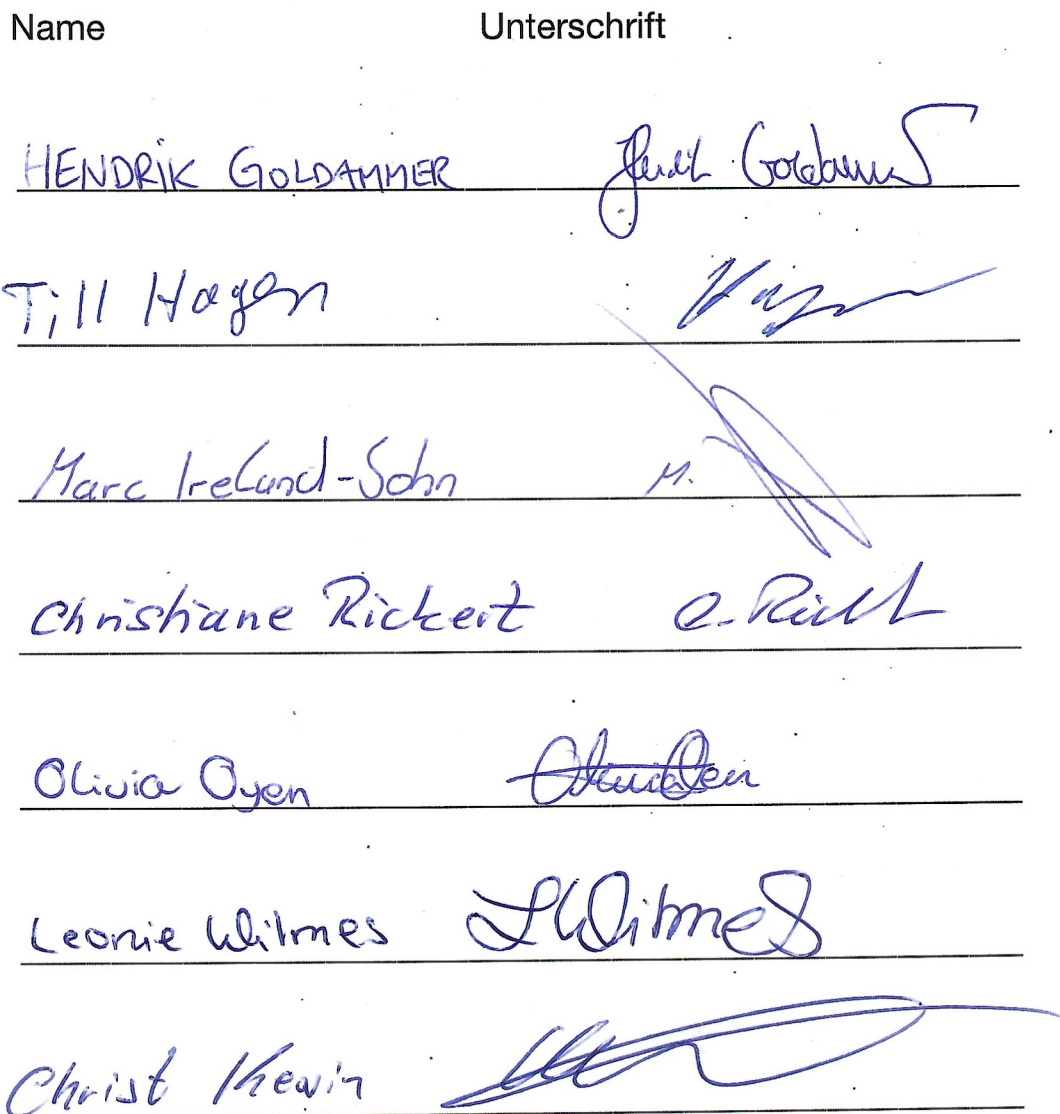 Name Unterschrift
HENDRIK GOLDAMMER Hendrik Goldammer
Till Hagen Hagen
Marc Ireland-Sohn M.
Christiane Rickert C. Rickert
Olivia Oyen Olivia Oyen
Leonie Wilmes L Wilmes
Christ Kevin